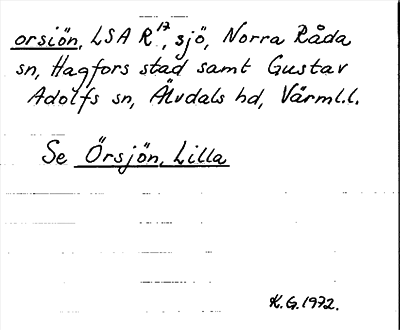 orsiön, LSA R¹⁷, sjö, Norra Råda
sn, Hagfors stad samt Gustav
Adolfs sn, Älvdals hd, Värml.l.
Se Örsjön, Lilla
K.G. 1972.